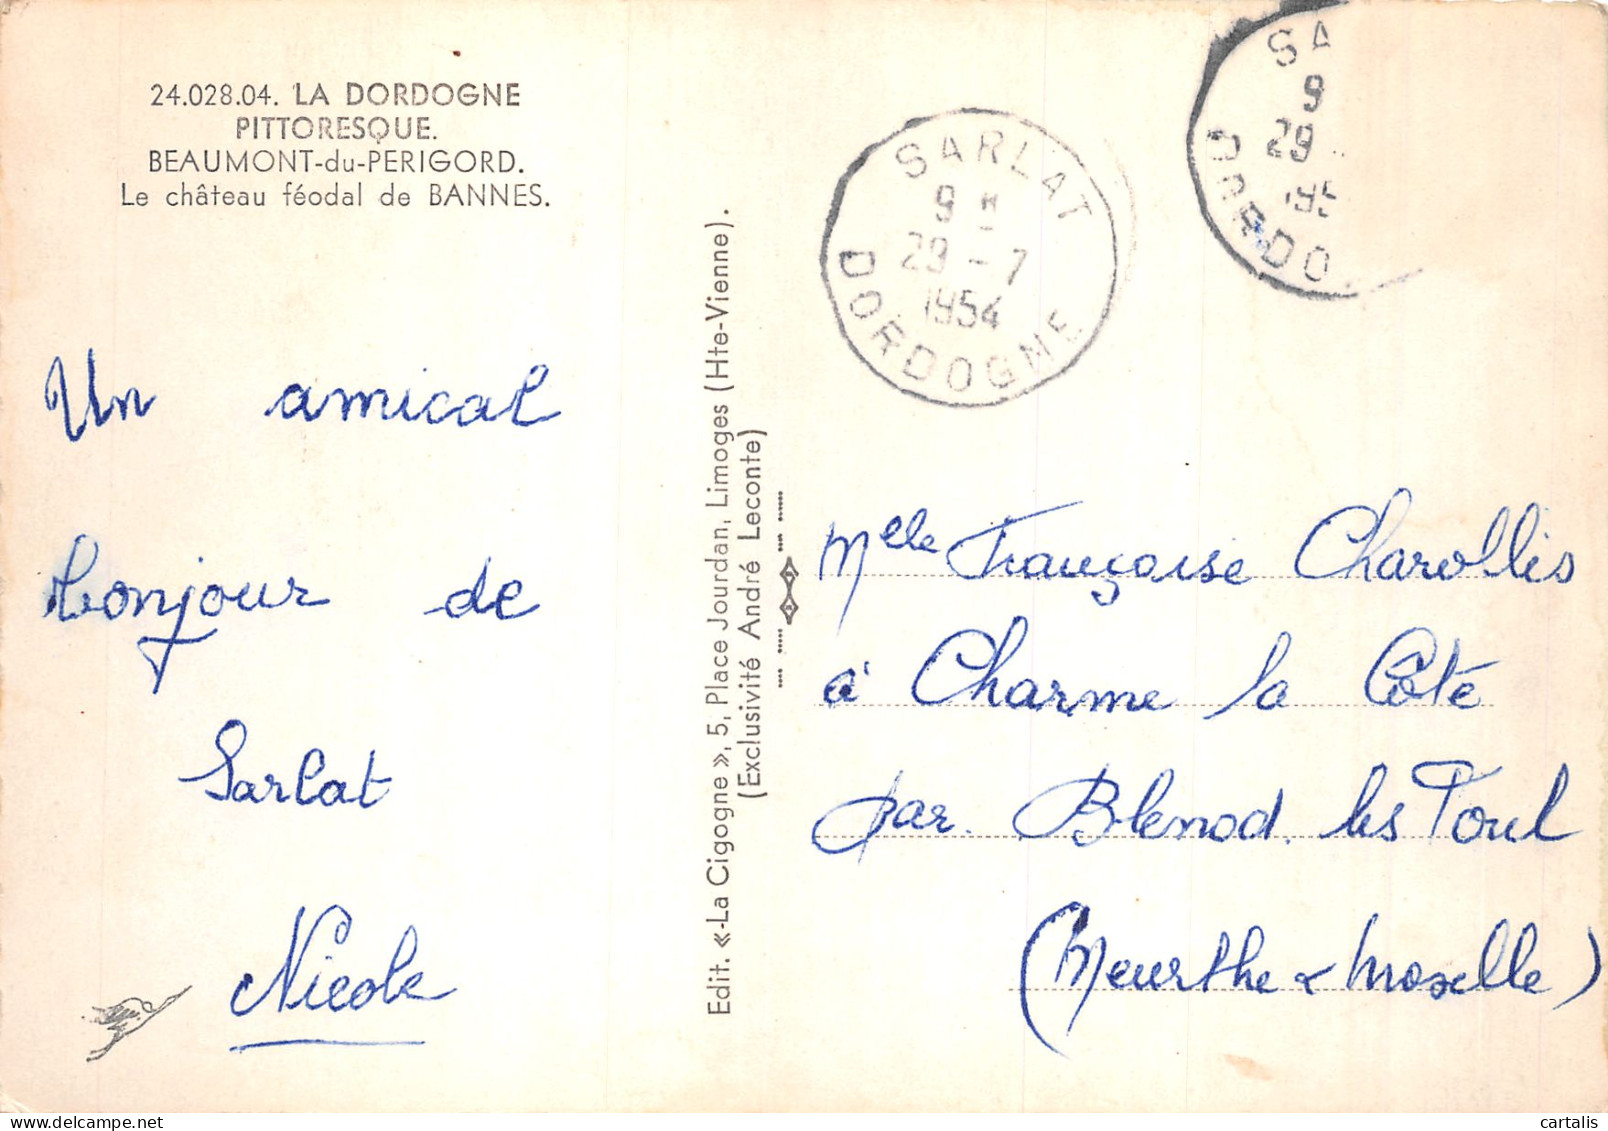 24.028.04. LA DORDOGNE
PITTORESQUE.
BEAUMONT-du-PERIGORD.
Le château féodal de BANNES.
Un amical
bonjour de
Sarlat
Nicole
Edit. «La Cigogne», 5, Place Jourdan, Limoges (Hte-Vienne).
(Exclusivité André Leconte)
SARLAT
9 H
29 - 7
1954
DORDOGNE
SA
9
29
195
DORDO
Melle Françoise Charollis
à Charme la Côte
par Blenod les Toul
(Meurthe & Moselle)
cartalis
delcampe.net